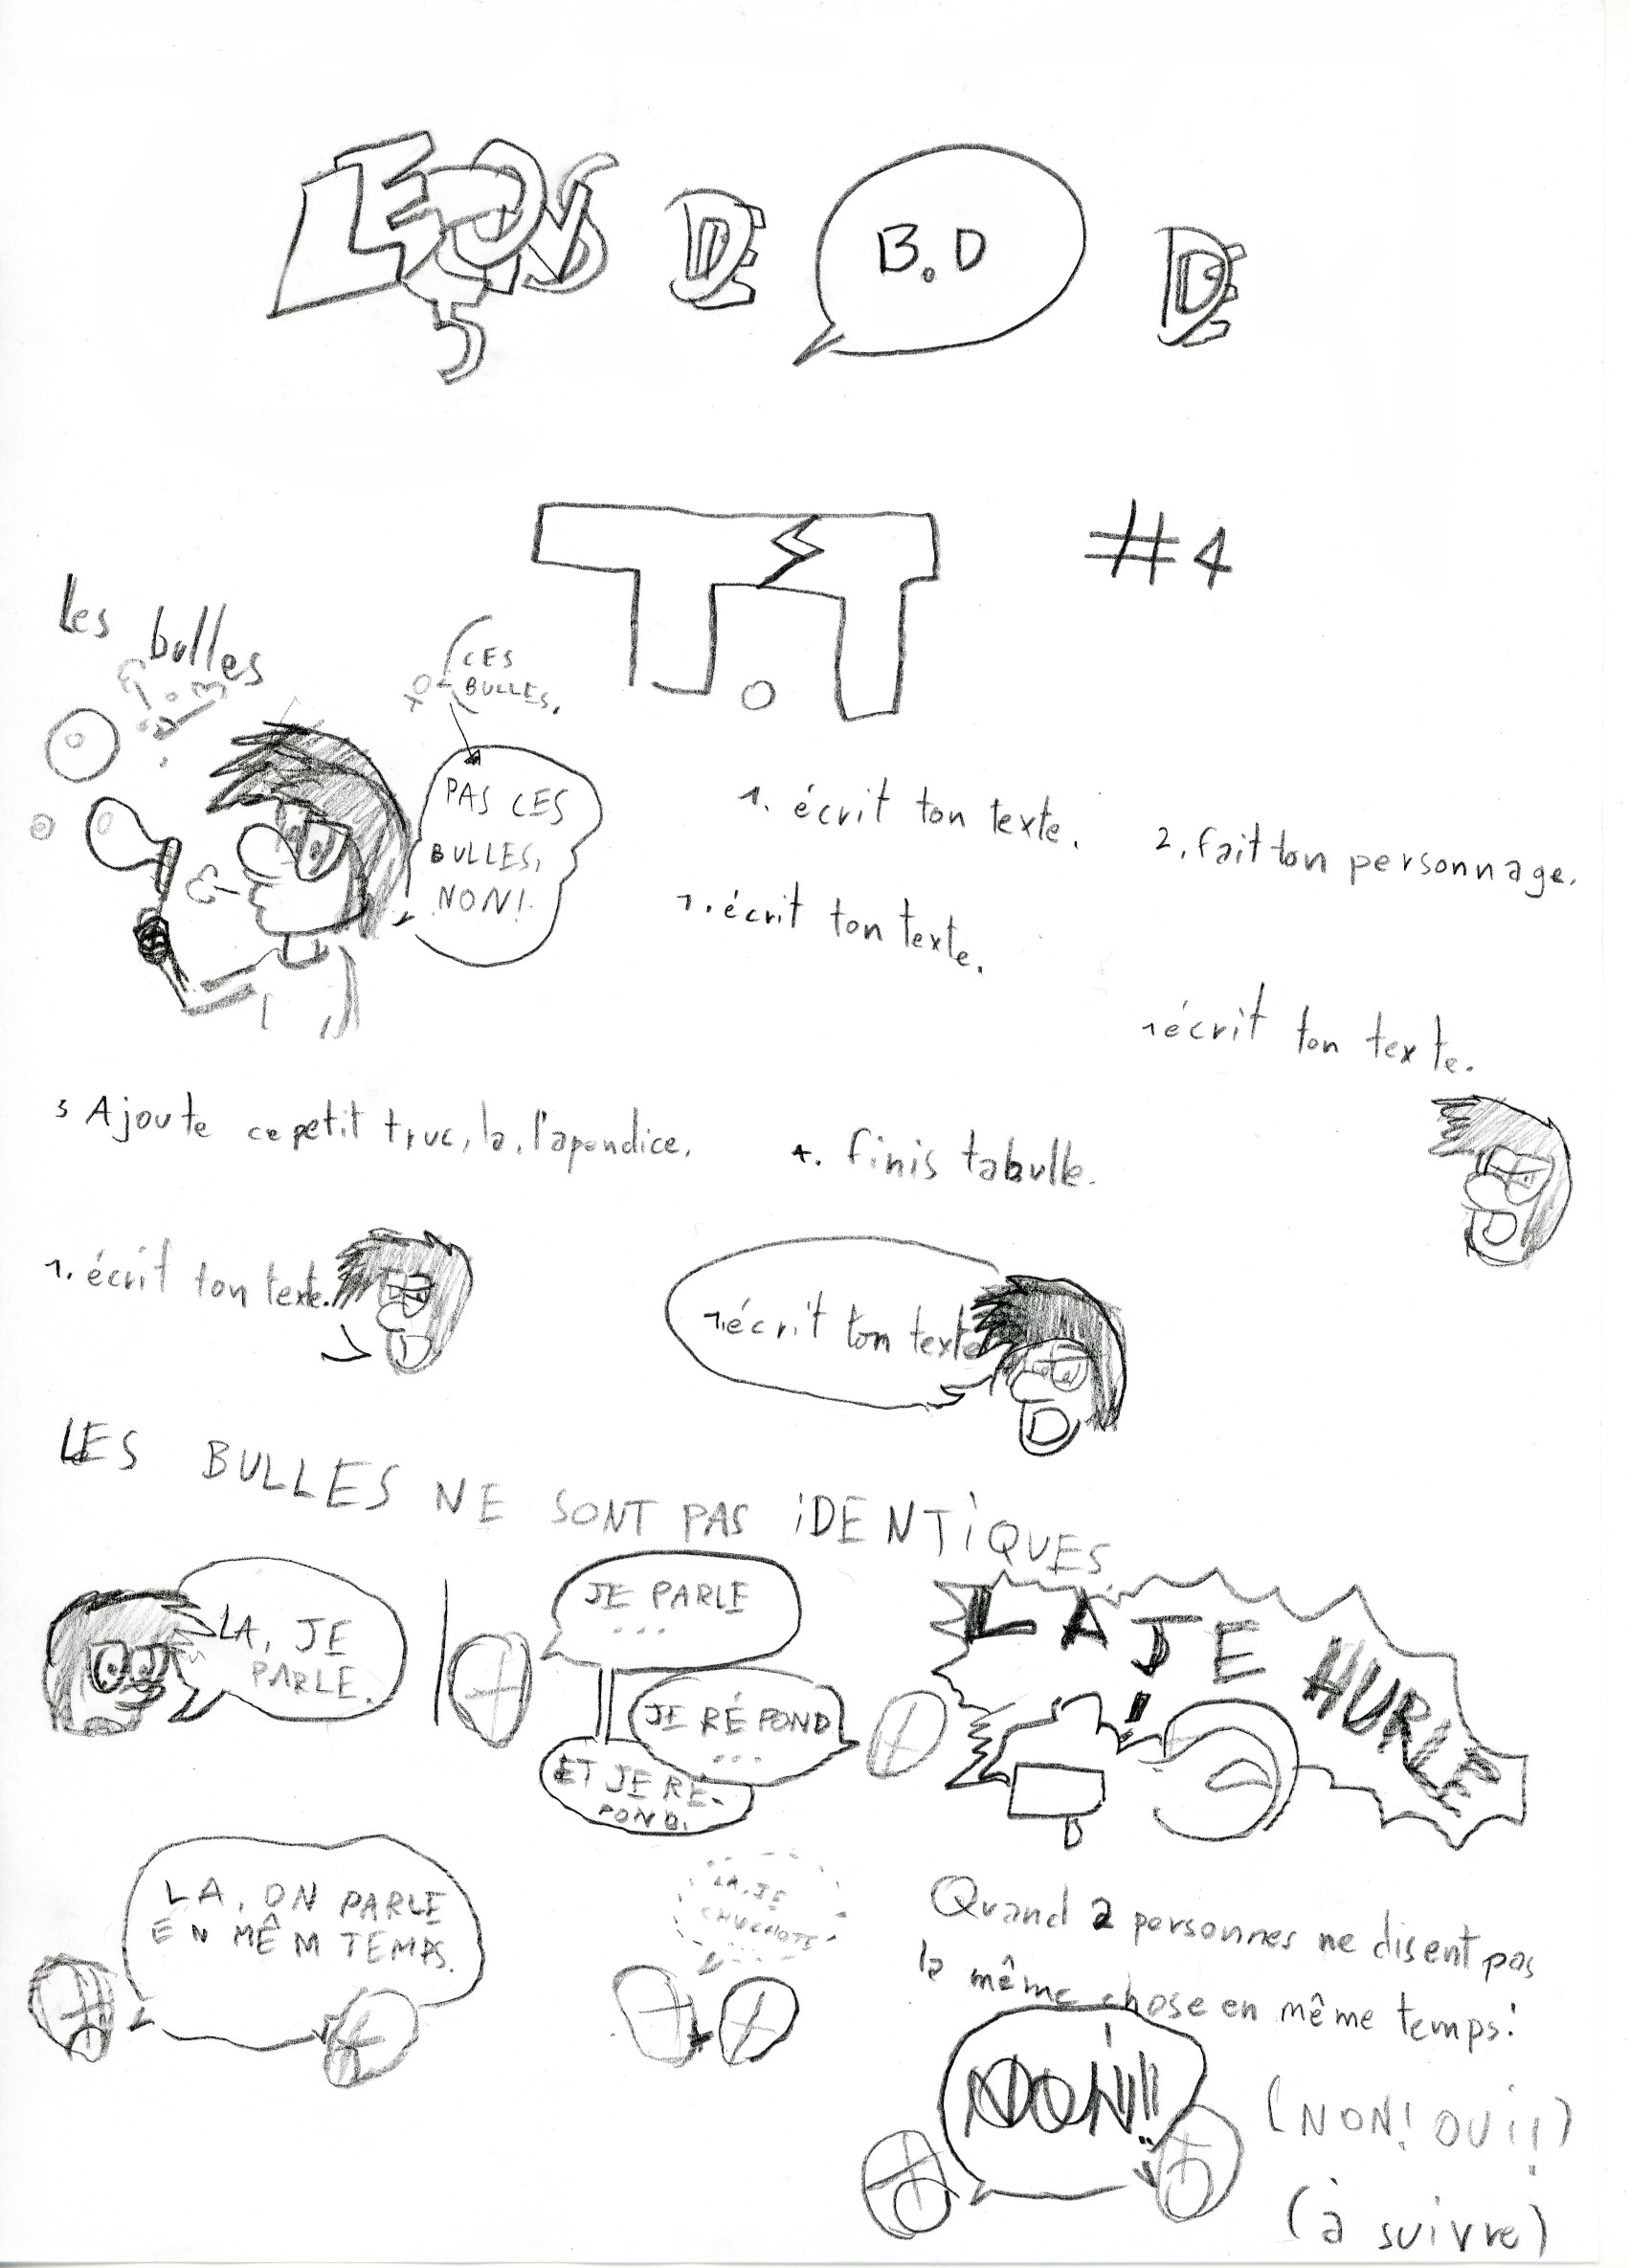 LEÇONS DE B.D DE
T.T #4
Les bulles
CES
BULLES.
PAS CES
BULLES,
NON!
1. écrit ton texte.
2. fait ton personnage.
1. écrit ton texte.
1 écrit ton texte.
3 Ajoute ce petit truc, la, l'apendice.
4. finis ta bulle.
1. écrit ton texte.
1. écrit ton texte
LES BULLES NE SONT PAS IDENTIQUES.
LA, JE
PARLE.
JE PARLE
...
JE RÉPOND
...
ET JE RÉ-
POND.
LA JE HURLE
!
LA, ON PARLE
EN MÊM TEMPS.
LA, JE
CHUCHOTE
Quand 2 personnes ne disent pas
la même chose en même temps:
(NON! OUI!)
(à suivre)